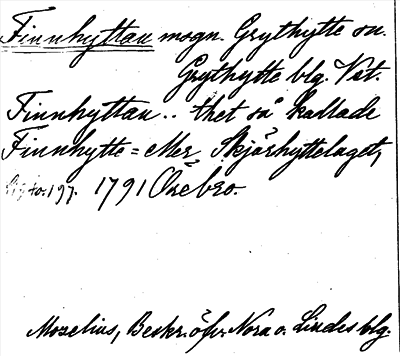 Finnhyttan msgn. Grythytte sn.
Grythytte blg. Vst.
Finnhyttan .. thet så kallade
Finnhytte= eller Skjärhyttelaget,
197. 1791 Örebro.
Mozelius, Beskr. öfv. Nora o. Lindes blg.